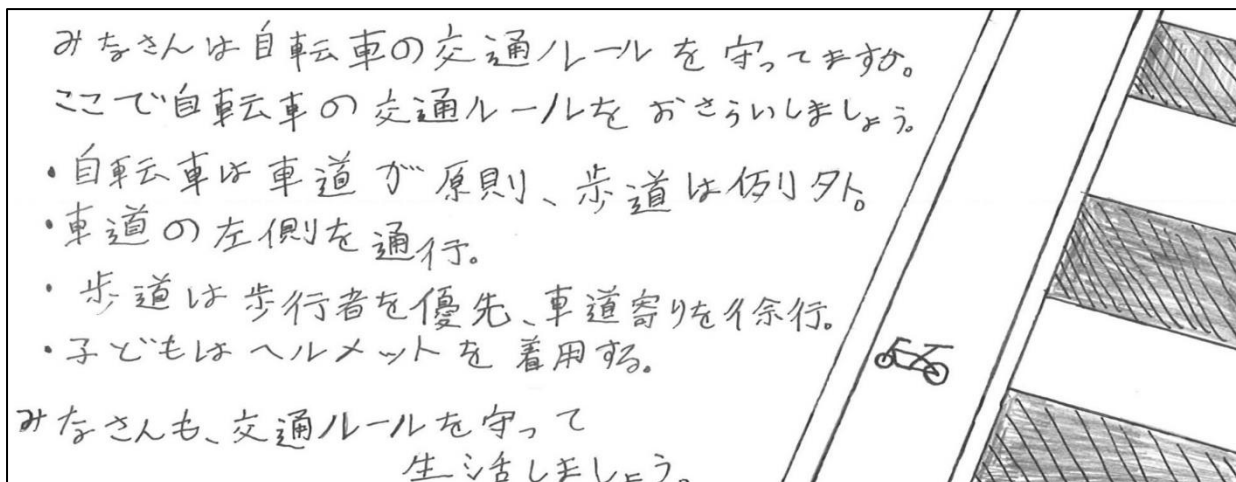 みなさんは自転車の交通ルールを守ってますか。
ここで自転車の交通ルールをおさらいしましょう。
・自転車は車道が原則、歩道は例外。
・車道の左側を通行。
・歩道は歩行者を優先、車道寄りを徐行。
・子どもはヘルメットを着用する。
みなさんも、交通ルールを守って
生活しましょう。